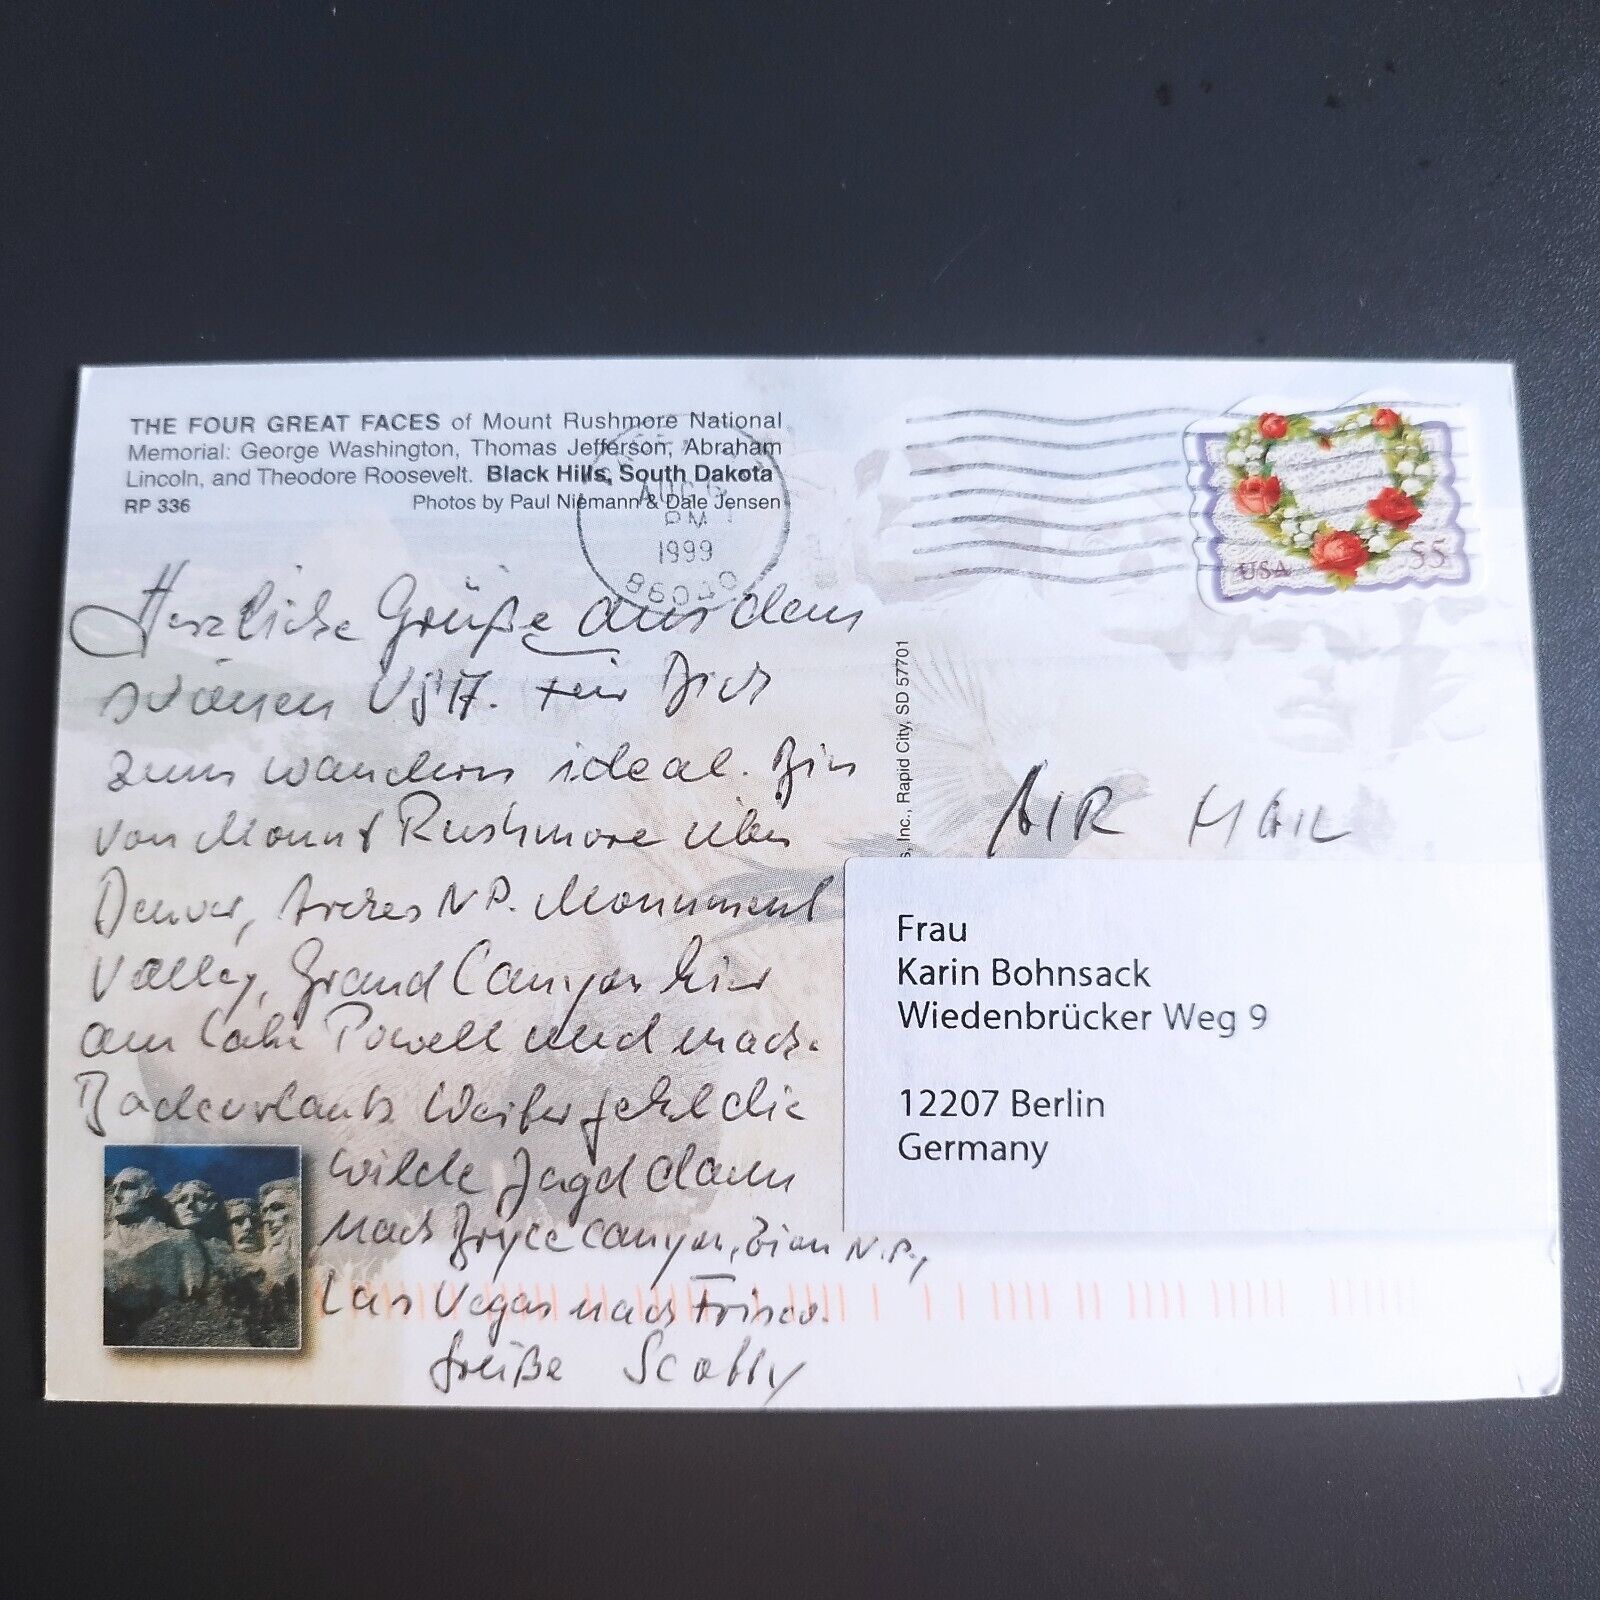 THE FOUR GREAT FACES of Mount Rushmore National
Memorial: George Washington, Thomas Jefferson, Abraham
Lincoln, and Theodore Roosevelt. Black Hills, South Dakota
RP 336 Photos by Paul Niemann & Dale Jensen
AUG
PM
1999
86040
USA 55
Herzliche Grüße aus dem
schönen USA. Für Dich
zum wandern ideal. Bin
von Mount Rushmore über
Denver, Arches N.P. Monument
Valley, Grand Canyon hier
am Lake Powell und mach.
Badeurlaub. Weiter geht die
wilde Jagd dann
nach Bryce Canyon, Zion N.P.,
Las Vegas nach Frisco.
Grüße Scotty
s, Inc., Rapid City, SD 57701
AIR MAIL
Frau
Karin Bohnsack
Wiedenbrücker Weg 9
12207 Berlin
Germany